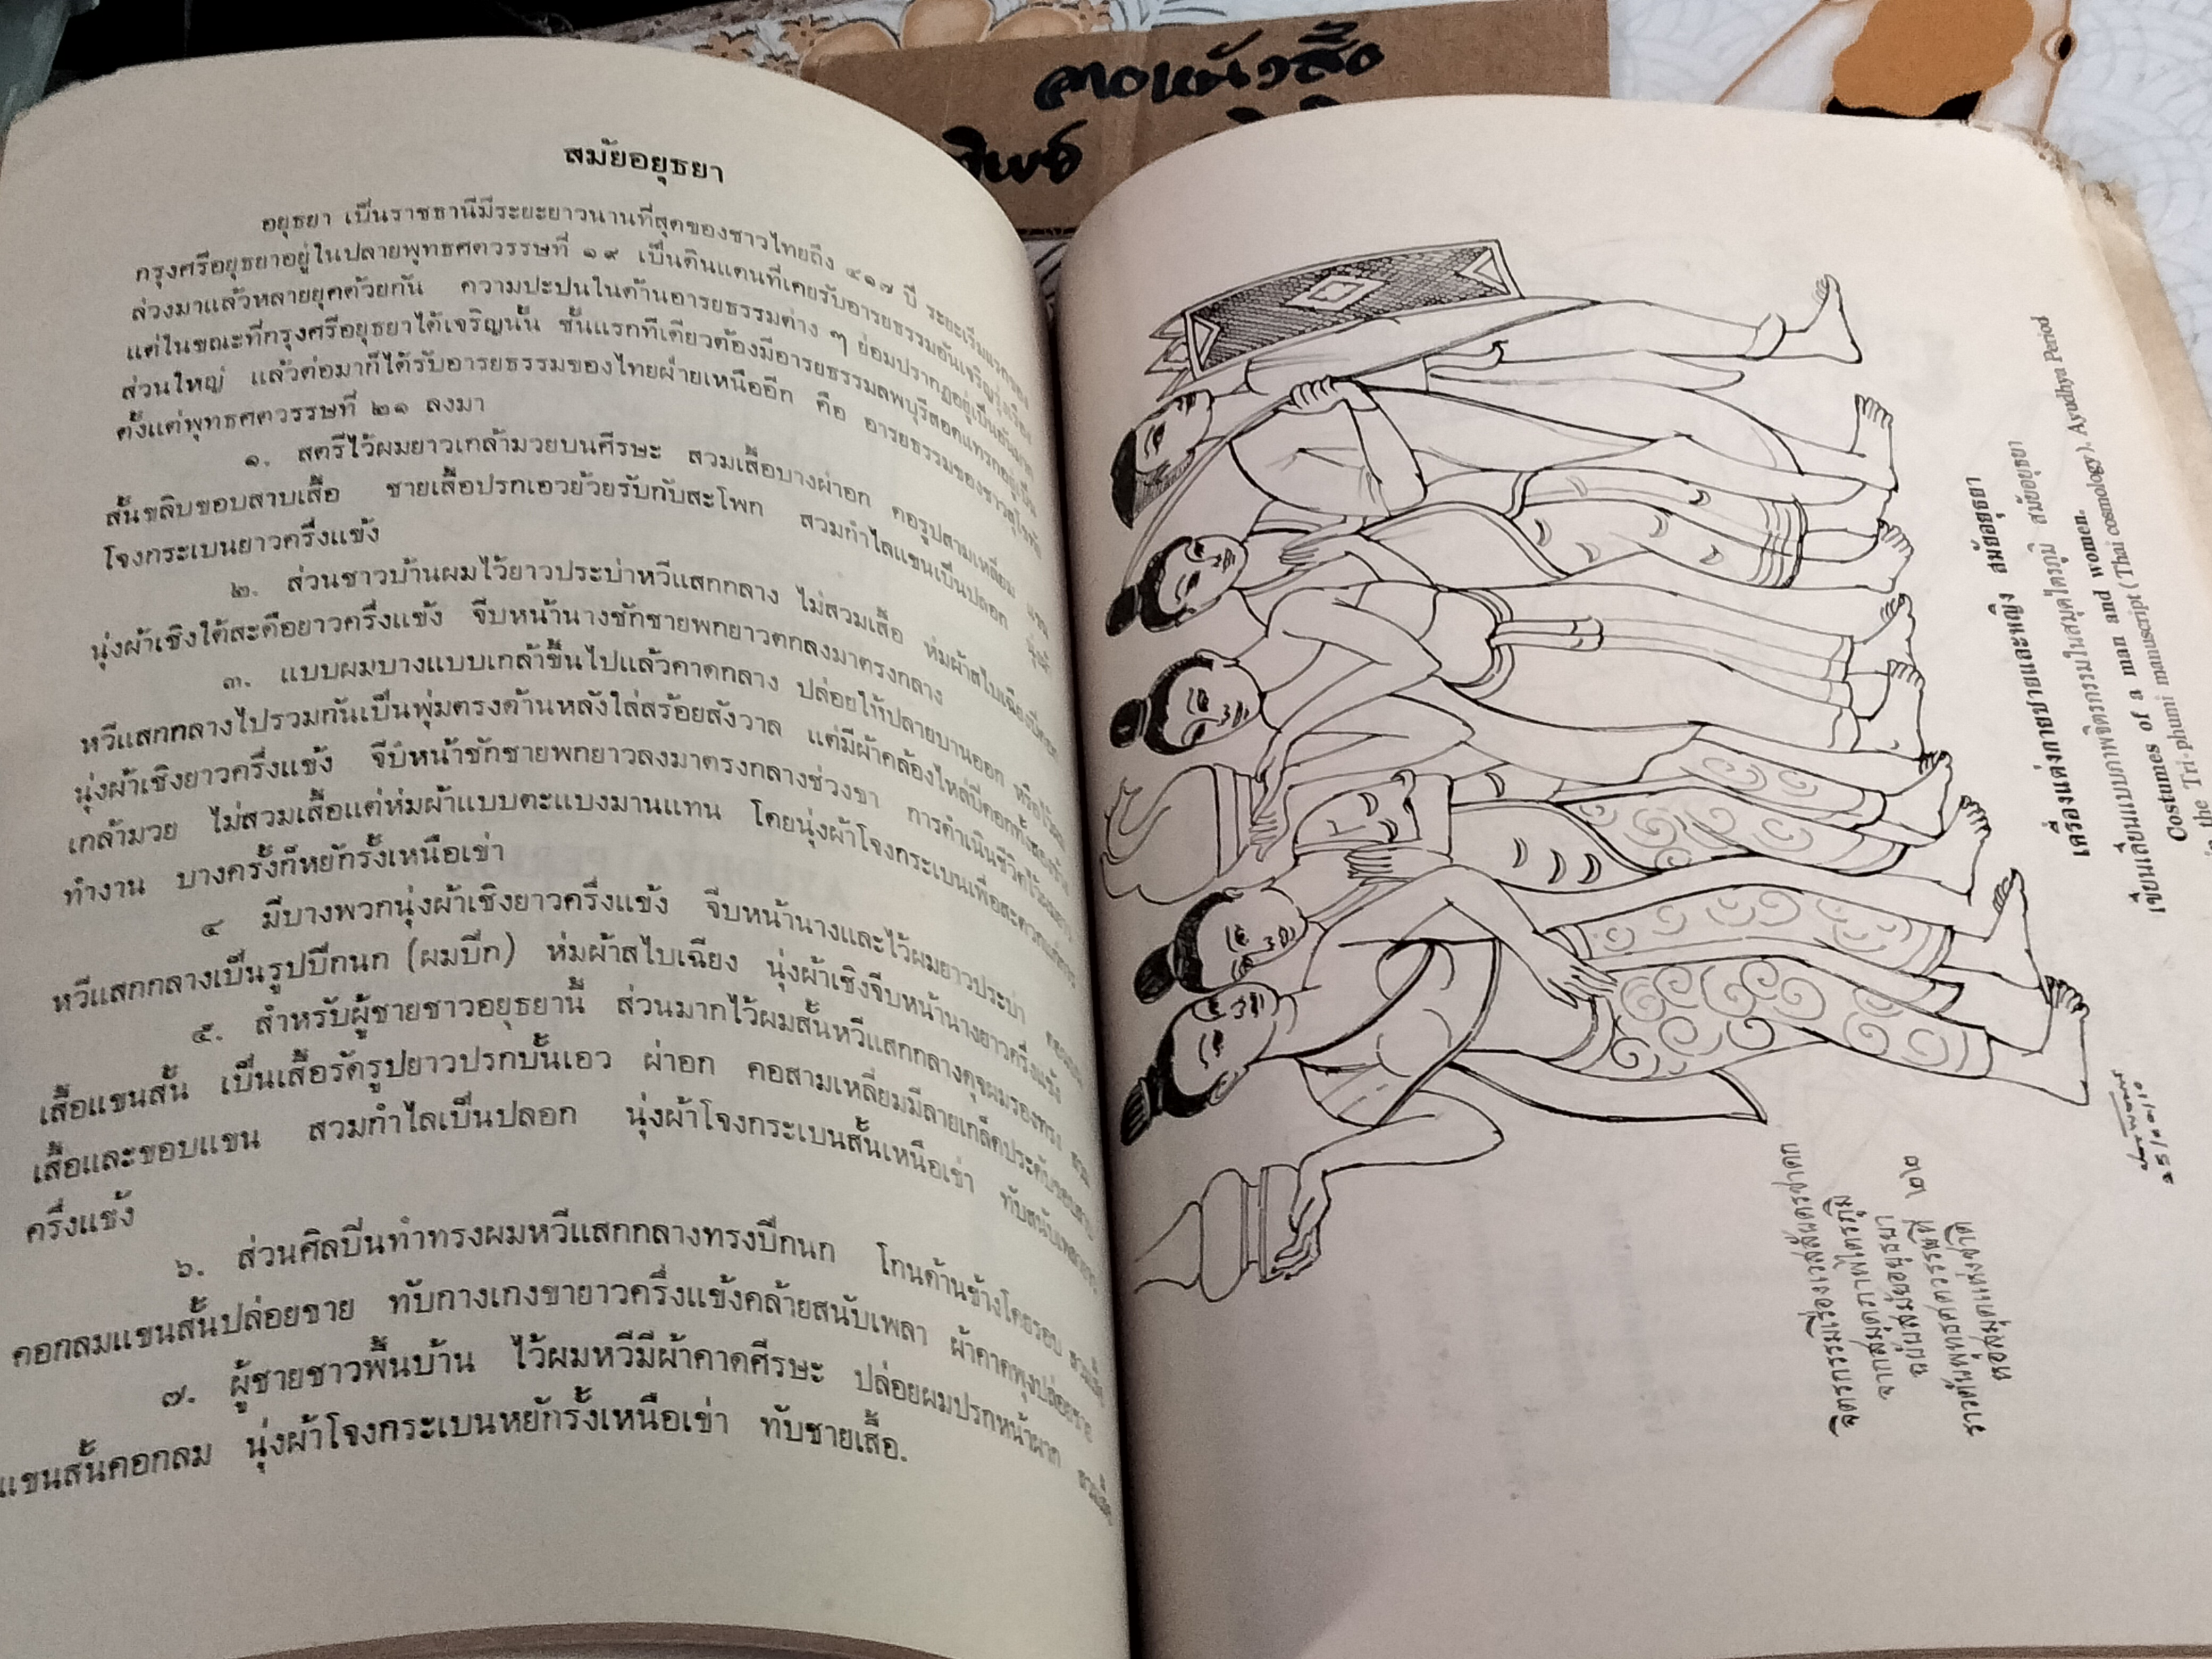 ลายหน้าสิ้ว
สมัยอยุธยา
อยุธยา เป็นราชธานีมีระยะยาวนานที่สุดของชาวไทยถึง ๔๑๗ ปี ระยะเริ่มแรกของ
กรุงศรีอยุธยาอยู่ในปลายพุทธศตวรรษที่ ๑๙ เป็นดินแดนที่เคยรับอารยธรรมอันเจริญรุ่งเรือง
ล่วงมาแล้วหลายยุคด้วยกัน ความปะปนในด้านอารยธรรมต่าง ๆ ย่อมปรากฏอยู่เป็นอันมาก
แต่ในขณะที่กรุงศรีอยุธยาได้เจริญนั้น ชั้นแรกทีเดียวต้องมีอารยธรรมลพบุรีสอดแทรกอยู่เป็น
ส่วนใหญ่ แล้วต่อมาก็ได้รับอารยธรรมของไทยฝ่ายเหนืออีก คือ อารยธรรมของชาวสุโขทัย
ตั้งแต่พุทธศตวรรษที่ ๒๑ ลงมา
๑. สตรีไว้ผมยาวเกล้ามวยบนศีรษะ สวมเสื้อบางผ่าอก คอรูปสามเหลี่ยม แขน
สั้นขลิบขอบสาบเสื้อ ชายเสื้อปรกเอวย้วยรับกับสะโพก สวมกำไลแขนเป็นปลอก นุ่งผ้า
โจงกระเบนยาวครึ่งแข้ง
๒. ส่วนชาวบ้านผมไว้ยาวประบ่าหวีแสกกลาง ไม่สวมเสื้อ ห่มผ้าสไบเฉียงปิดอก
นุ่งผ้าเชิงใต้สะดือยาวครึ่งแข้ง จีบหน้านางชักชายพกยาวตกลงมาตรงกลาง
๓. แบบผมบางแบบเกล้าขึ้นไปแล้วคาดกลาง ปล่อยให้ปลายบานออก หรือไว้ผม
หวีแสกกลางไปรวมกันเป็นพุ่มตรงด้านหลังใส่สร้อยสังวาล แต่มีผ้าคล้องไหล่ปิดอกทั้งสองข้าง
นุ่งผ้าเชิงยาวครึ่งแข้ง จีบหน้าชักชายพกยาวลงมาตรงกลางช่วงขา การดำเนินชีวิตไว้ผมยาว
เกล้ามวย ไม่สวมเสื้อแต่ห่มผ้าแบบตะแบงมานแทน โดยนุ่งผ้าโจงกระเบนเพื่อสะดวกแก่การ
ทำงาน บางครั้งก็หยักรั้งเหนือเข่า
๔ มีบางพวกนุ่งผ้าเชิงยาวครึ่งแข้ง จีบหน้านางและไว้ผมยาวประบ่า ตอนบน
หวีแสกกลางเป็นรูปปีกนก (ผมปีก) ห่มผ้าสไบเฉียง นุ่งผ้าเชิงจีบหน้านางยาวครึ่งแข้ง
๕. สำหรับผู้ชายชาวอยุธยานี้ ส่วนมากไว้ผมสั้นหวีแสกกลางดุจผมรองทรง สวม
เสื้อแขนสั้น เป็นเสื้อรัดรูปยาวปรกบั้นเอว ผ่าอก คอสามเหลี่ยมมีลายเกล็ดประดับขอบสาบ
เสื้อและขอบแขน สวมกำไลเป็นปลอก นุ่งผ้าโจงกระเบนสั้นเหนือเข่า ทับสนับเพลายาว
ครึ่งแข้ง
๖. ส่วนศิลปินทำทรงผมหวีแสกกลางทรงปีกนก โกนด้านข้างโดยรอบ สวมเสื้อ
คอกลมแขนสั้นปล่อยชาย ทับกางเกงขายาวครึ่งแข้งคล้ายสนับเพลา ผ้าคาดพุงปล่อยชาย
๗. ผู้ชายชาวพื้นบ้าน ไว้ผมหวีมีผ้าคาดศีรษะ ปล่อยผมปรกหน้าผาก สวมเสื้อ
แขนสั้นคอกลม นุ่งผ้าโจงกระเบนหยักรั้งเหนือเข่า ทับชายเสื้อ.
จิตรกรรมเรื่องเวสสันดรชาดก
จากสมุดภาพไตรภูมิ
ฉบับสมัยอยุธยา
ราวต้นพุทธศตวรรษที่ ๒๒
หอสมุดแห่งชาติ
เครื่องแต่งกายชายและหญิง สมัยอยุธยา
เขียนเลียนแบบภาพจิตรกรรมในสมุดไตรภูมิ สมัยอยุธยา
Costumes of a man and women.
in the Tri-phumi manuscript (Thai cosmology). Ayudhya Period